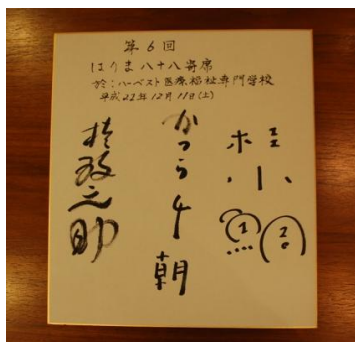 第6回
はりま八十八寄席
於:ハーベスト医療福祉専門学校
平成22年12月11日(土)
桂小鯛
かつら千朝
桂歌之助